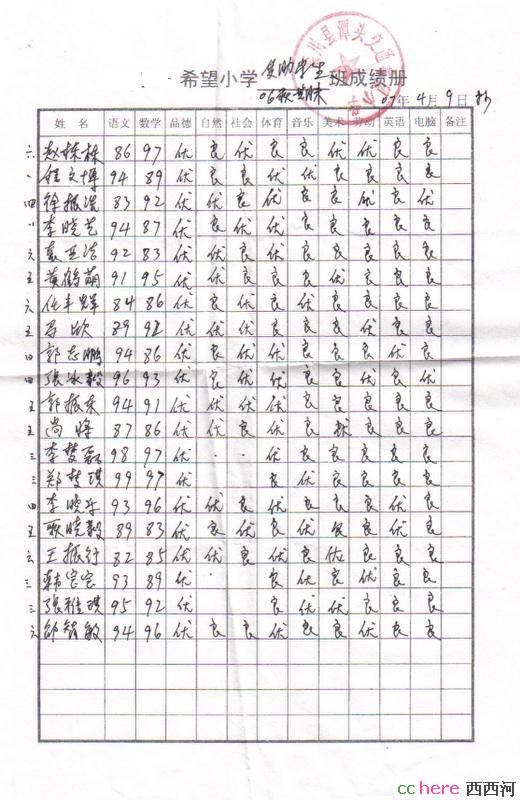 希望小学 受助学生 班成绩册
07年4月9日
姓名 语文 数学 品德 自然 社会 体育 音乐 美术 劳动 英语 电脑 备注
六 赵栋栋 86 97 优 良 优 良 良 优 优 良 良
94 89 优 良 良 优 优 良 良 良 良
四 徐振 83 92 优 优 良 优 良 良 优 良 优
李晓艺 94 87 优 良 优 优 良 良 良 良 良
六 92 83 优 优 良 优 良 良 良 良 良
五 黄鹤萌 91 95 优 优 良 良 良 优 良 良 良
六 任丰辉 84 86 优 良 优 良 优 良 良 良 良
五 89 92 优 优 优 良 良 良 优 良 良
四 郭志鹏 94 86 优 良 优 优 良 良 良 优 良
四 张冰毅 96 93 优 良 优 优 良 良 优 良 优
五 郭振东 94 91 优 优 优 优 良 良 良 良 良
五 尚 87 86 优 优 良 优 良 良 良 良
三 李梦磊 98 97 优 · · 优 良 良 良 良 良
三 郑梦琪 99 97 优 良 优 良 良 良 良
四 李晓乐 93 96 优 优 良 优 良 良 良 优 良
五 耿晓毅 89 83 优 良 优 良 优 良 良 优 良
六 王振行 82 85 优 优 良 优 良 优 良 良 良
三 韩宜宜 93 89 优 · 良 优 良 优 良 良
三 张雅琪 95 92 优 良 优 优 良 良 良
六 邰智敏 94 96 优 良 良 优 良 良 优 良 良
cchere 西西河